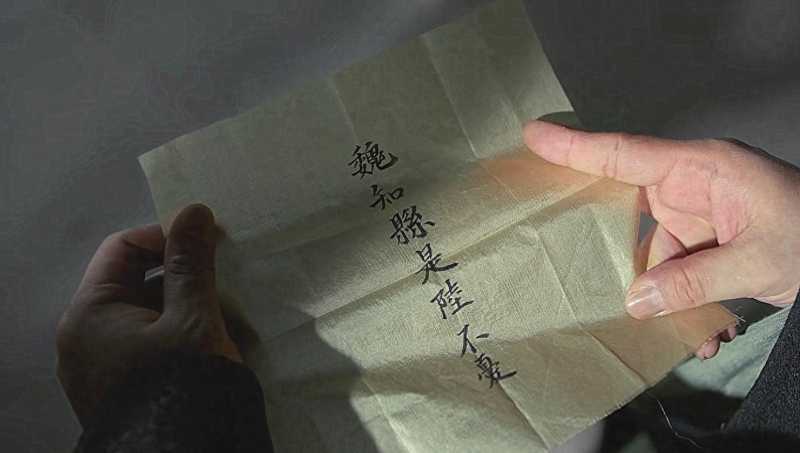 魏知縣是陸不憂